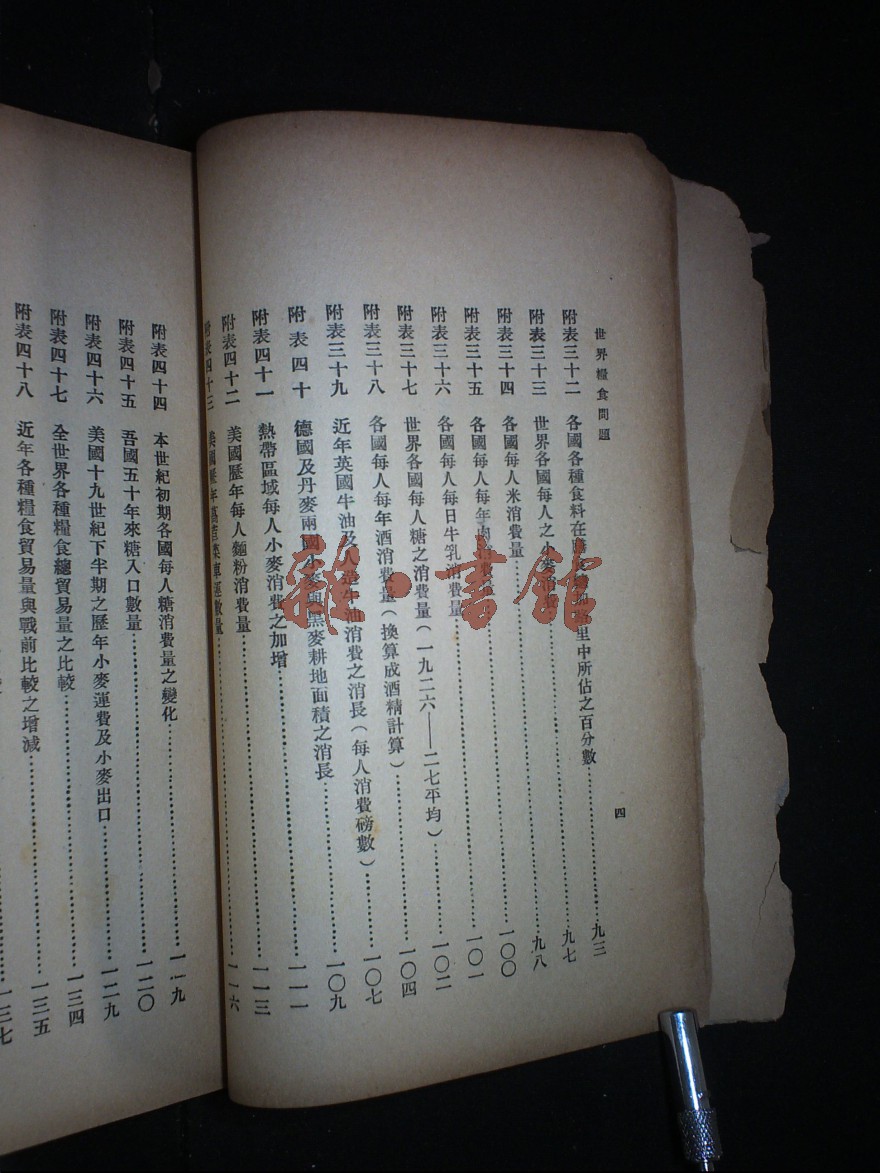 世界糧食問題
附表三十二 各國各種食料在膳食總加路里中所佔之百分數……九三
附表三十三 世界各國每人之小麥消費量……九七
附表三十四 各國每人米消費量……九八
附表三十五 各國每人每年肉消費量……一〇〇
附表三十六 各國每人每日牛乳消費量……一〇一
附表三十七 世界各國每人糖之消費量(一九二六——二七平均)……一〇二
附表三十八 各國每人每年酒消費量(換算成酒精計算)……一〇四
附表三十九 近年英國牛油及人造牛油消費之消長(每人消費磅數)……一〇七
附表四十 德國及丹麥兩國小麥與黑麥耕地面積之消長……一〇九
附表四十一 熱帶區域每人小麥消費之加增……一一一
附表四十二 美國歷年每人麵粉消費量……一一三
附表四十三 美國歷年萵苣菜車運數量……一一六
四
附表四十四 本世紀初期各國每人糖消費量之變化……一一九
附表四十五 吾國五十年來糖入口數量……一二〇
附表四十六 美國十九世紀下半期之歷年小麥運費及小麥出口……一二九
附表四十七 全世界各種糧食總貿易量之比較……一三四
附表四十八 近年各種糧食貿易量與戰前比較之增減……一三五
一三七
書館